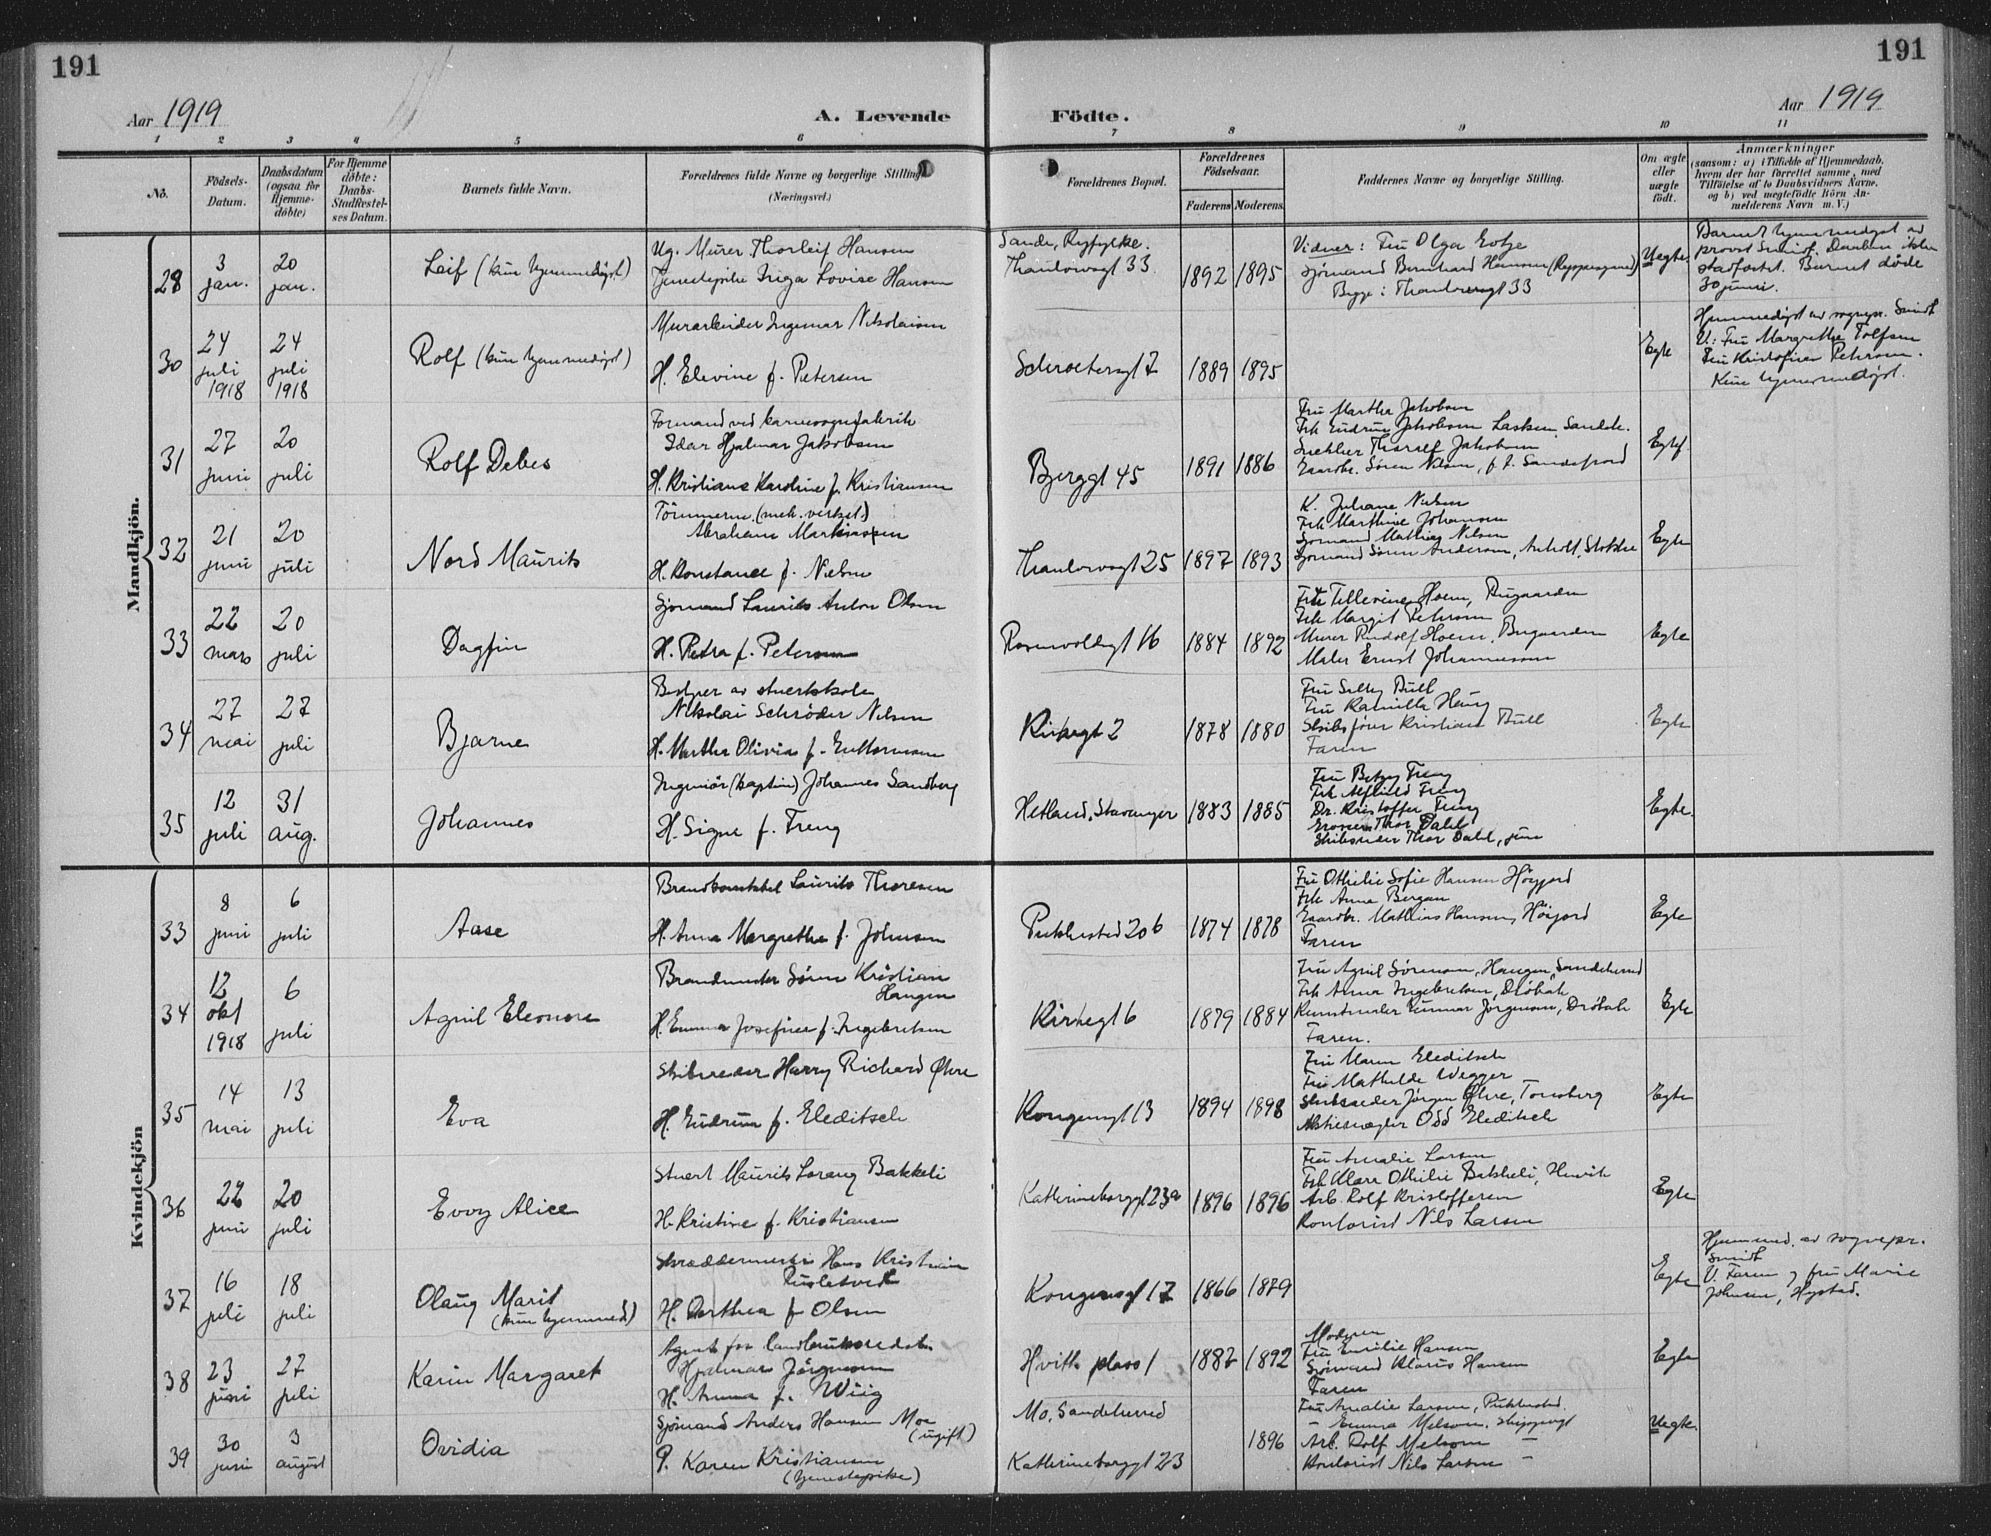 191
191
Aar 1919
A. Levende
Födte.
Aar 1919
1 2 3 4 5 6 7 8 9 10 11
No.
Födsels-
Datum.
Daabsdatum
(ogsaa for
Hjemme-
döbte)
For Hjemme
döbte:
Daabs-
Stadfestel-
ses Datum.
Barnets fulde Navn.
Forældrenes fulde Navne og borgerlige Stilling
(Næringsvei.)
Forældrenes Bopæl.
Forældrenes
Födselsaar.
Faderens Moderens.
Faddernes Navne og borgerlige Stilling.
Om ægte
eller
uægte
født.
Anmærkninger
(saasom: a) i Tilfælde af Hjemmedaab,
hvem der har forrettet samme, med
Tilföielse af to Daabsvidners Navne,
og b) ved uægtefödte Börn An-
melderens Navn m. V.)
Mandkjön.
28
3
jan.
20
jan.
Leif (kun hjemmedøpt)
Ug. Murer Thorleif Hansen
Tjenestepike Inga Lovise Hansen
Sande, Ryfylke.
Thaulowsgt 33
1892 1895
Vidner: Fru Olga
Sjømand Bernhard Hansen
Begge: Thaulowsgt 33
Uegte
Barnet hjemmedøpt av
provst Smidt. Daaben ikke
stadfæstet. Barnet døde
30 juni.
30
24
juli
1918
24
juli
1918
Rolf (kun hjemmedøpt)
Murarbeider Ingemar Nikolaisen
H. Elevine f. Petersen
Schroetersgt 7
1889 1895
Egte
Hjemmedøpt av sognepr. Smidt
V.: Fru Margrethe Tolfsen
Fru Kristofine Petersen.
Kun hjemmedøpt.
31
27
juni
20
juli
Rolf Debes
Formand ved
Idar Hjalmar Jakobsen
H. Kristiane Karoline f. Kristiansen
Bjerggt 45
1891 1886
Fru Martha Jakobsen
Frk Gudrun Jakobsen Sandeh.
Snekker Thoralf Jakobsen
Gaardbr. Søren Nilsen, f. t. Sandefjord
Egte
32
21
juni
20
juli
Nord Maurits
Tömmerm. (mek. verkst.)
Abraham Markussen
H. Konstance f. Nielsen
Thaulowsgt 25
1897 1893
K. Juliane Nielsen
Frk Marthine Johansen
Sjömand Mathias Nilsen
Sjömand Sören Andersen, Stokke
Egte
33
22
mars
20
juli
Dagfin
Sjömand Laurits Anton Olsen
H. Petra f. Petersen
Rosenvoldsgt 16
1884 1892
Frk Tellevine Hoem, Bugaarden
Frk Margit Petersen
Murer Rudolf Hoem, Bugaarden
Maler Ernst Johannessen
Egte
34
27
mai
27
juli
Bjarne
Bestyrer av stuertskole
Nikolai Schröder Nilsen
H. Martha Olivia f. Guttormsen
Kirkegt 2
1878 1880
Fru Selly Bull
Fru Kamilla Haug
Skibsförer Kristian Bull
Faren
Egte
35
12
juli
31
aug.
Johannes
Ingeniör (kaptein) Johannes Sandberg
H. Signe f. Freng
Hetland, Stavanger
1883 1885
Fru Betzy Freng
Frk Alfhild Freng
Dr. Kristoffer Freng
Grosserer Thor Dahl
Skibsreder Thor Dahl, jun
Egte.
Kvindekjön
33
8
juni
6
juli
Aase
Brandkonstabel Laurits Thoresen
H. Anna Margrethe f. Johnsen
Pukkestad 20 b
1874 1878
Fru Othilie Sofie Hansen Höyjord
Frk Anna Bergan
Gaardbr. Mathias Hansen, Höijord
Faren
Egte
34
12
okt
1918
6
juli
Agnil Eleonore
Brandmester Sören Kristian
Haugen
H. Emma Josefine f. Ingebretsen
Kirkegt 6
1879 1884
Fru Agnil Sörensen, Haugen, Sandeherred
Frk Anna Ingebretsen, Dröbak
Kunstmaler Gunnar Jörgensen, Dröbak
Faren.
Egte
35
14
mai
13
juli
Eva
Skibsreder Harry Richard Øhre
H. Gudrun f. Gleditsch
Kongensgt 13
1894 1898
Fru Maren Gleditsch
Fru Mathilde Wegger
Skibsreder Jörgen Øhre, Tønsberg
Aktiemægler Odd Gleditsch
Egte
36
22
juni
20
juli
Evoy Alice
Stuert Maurits Lorang Bakkeli
H. Kristine f. Kristiansen
Katherineborggt 23a
1896 1896
Fru Amalie Larsen
Frk Klara Othilie Bakkeli, Hurvik
Arb. Rolf Kristoffersen
Kontorist Nils Larsen
Egte
37
16
juli
18
juli
Olaug Marit
(kun hjemmed.)
Skræddermester Hans Kristian
H. Dorthea f Olsen
Kongensgt 17
1866 1879
Egte
Hjemmed. av sognepr.
Smidt
V. Faren og fru Marie
Johnsen, Hystad.
38
23
juni
27
juli
Karin Margaret
Agent for landbruksredsk.
Hjalmar Jörgensen
H. Anna f. Wiig
Hvitts plass 1
1887 1892
Moderen
Fru Emilie Hansen
Sjömand Klarus Hansen
Faren
Egte
39
30
juni
3
august
Ovidia
Sjömand Anders Hansen Moe
(ugift)
P. Karen Kristiansen
(tjenestepike)
Mo, Sandeherred
Katherineborggt 23
1896
Fru Amalie Larsen, Pukkestad.
— Emma Melsom, Skippergt
Arb. Rolf Melsom —
Kontorist Nils Larsen —
Uegte.